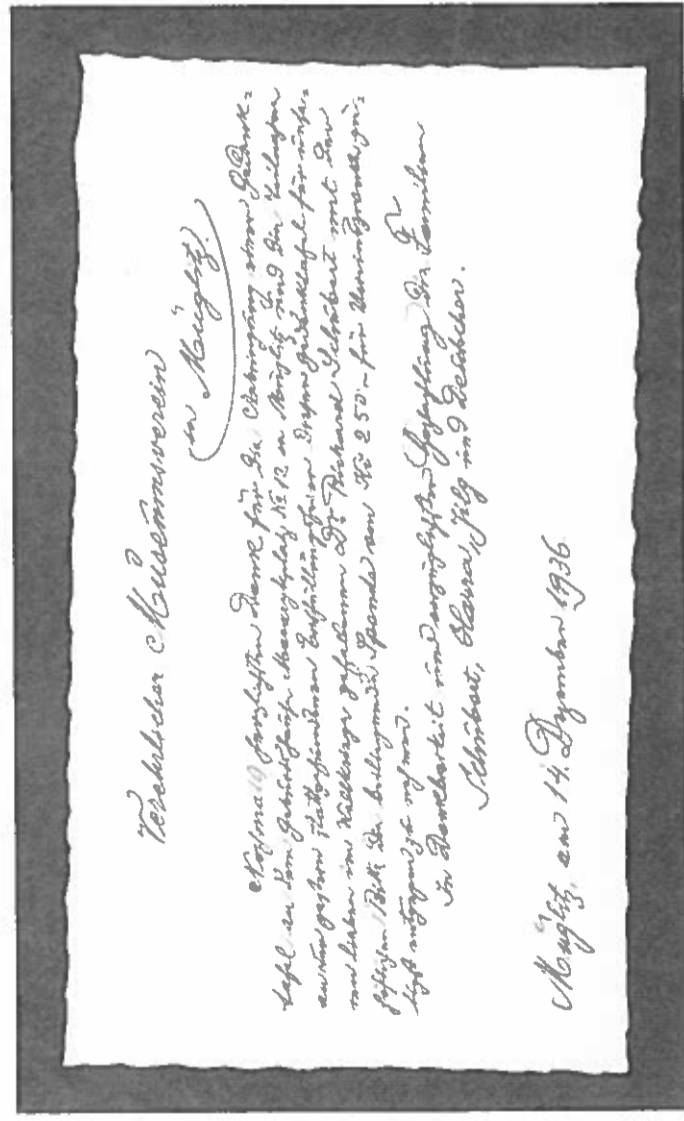 Verehrlicher Museumsverein
in Müglitz!
Nochmals herzlichsten Dank für die Anbringung einer Gedenk-
tafel an dem Geburtshause Marktplatz № 12 in Müglitz und die
an der gestern stattgefundenen Enthüllungsfeier dieser Gedenktafel für unse-
ren lieben im Weltkriege gefallenen Dr Richard Schubert mit der
höflichen Bitte die beiliegende Spende von Kč 250·– für Vereinszwecke gü-
tigst entgegen zu nehmen.
In Dankbarkeit und vorzüglicher Hochachtung die Familien
Schubert, Jilg und Deutscher.
Müglitz, am 14. Dezember 1936